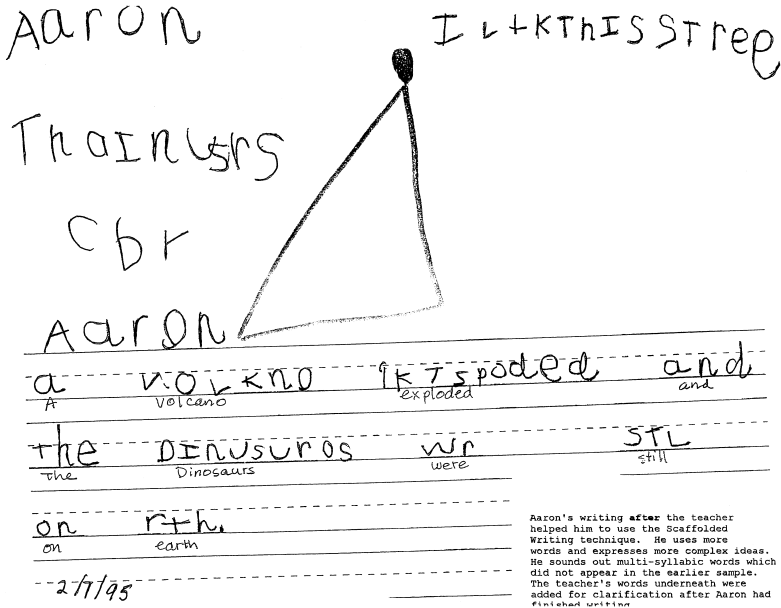 Aaron
I LtKThISSTree
ThaINUsrs
Cbr
Aaron
a VOLKNO IKTSpoded and
A Volcano exploded and
the DINUSUROS Wr STL
The Dinosaurs were still
on rth.
on earth
2/7/95
Aaron's writing after the teacher
helped him to use the Scaffolded
Writing technique. He uses more
words and expresses more complex ideas.
He sounds out multi-syllabic words which
did not appear in the earlier sample.
The teacher's words underneath were
added for clarification after Aaron had
finished writing